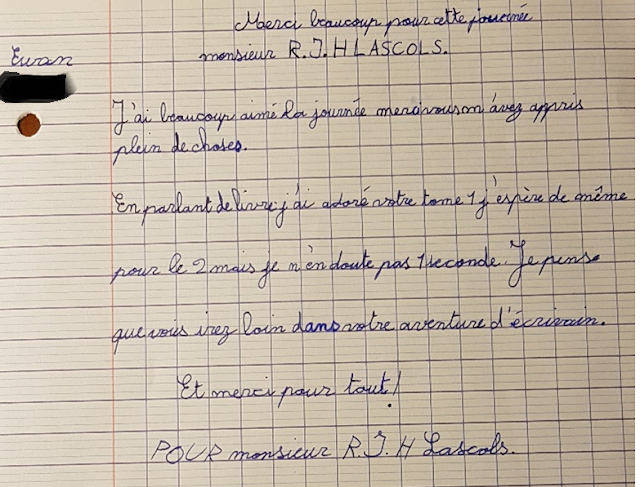 Merci beaucoup pour cette journée
Ewan
monsieur R.J.H LASCOLS.
J'ai beaucoup aimé la journée merci vous m'avez appris
plein de choses.
En parlant de livre j'ai adoré votre tome 1 j'espère de même
pour le 2 mais je n'en doute pas 1 seconde. Je pense
que vous irez loin dans votre aventure d'écrivain.
Et merci pour tout!
POUR monsieur R.J.H Lascols.